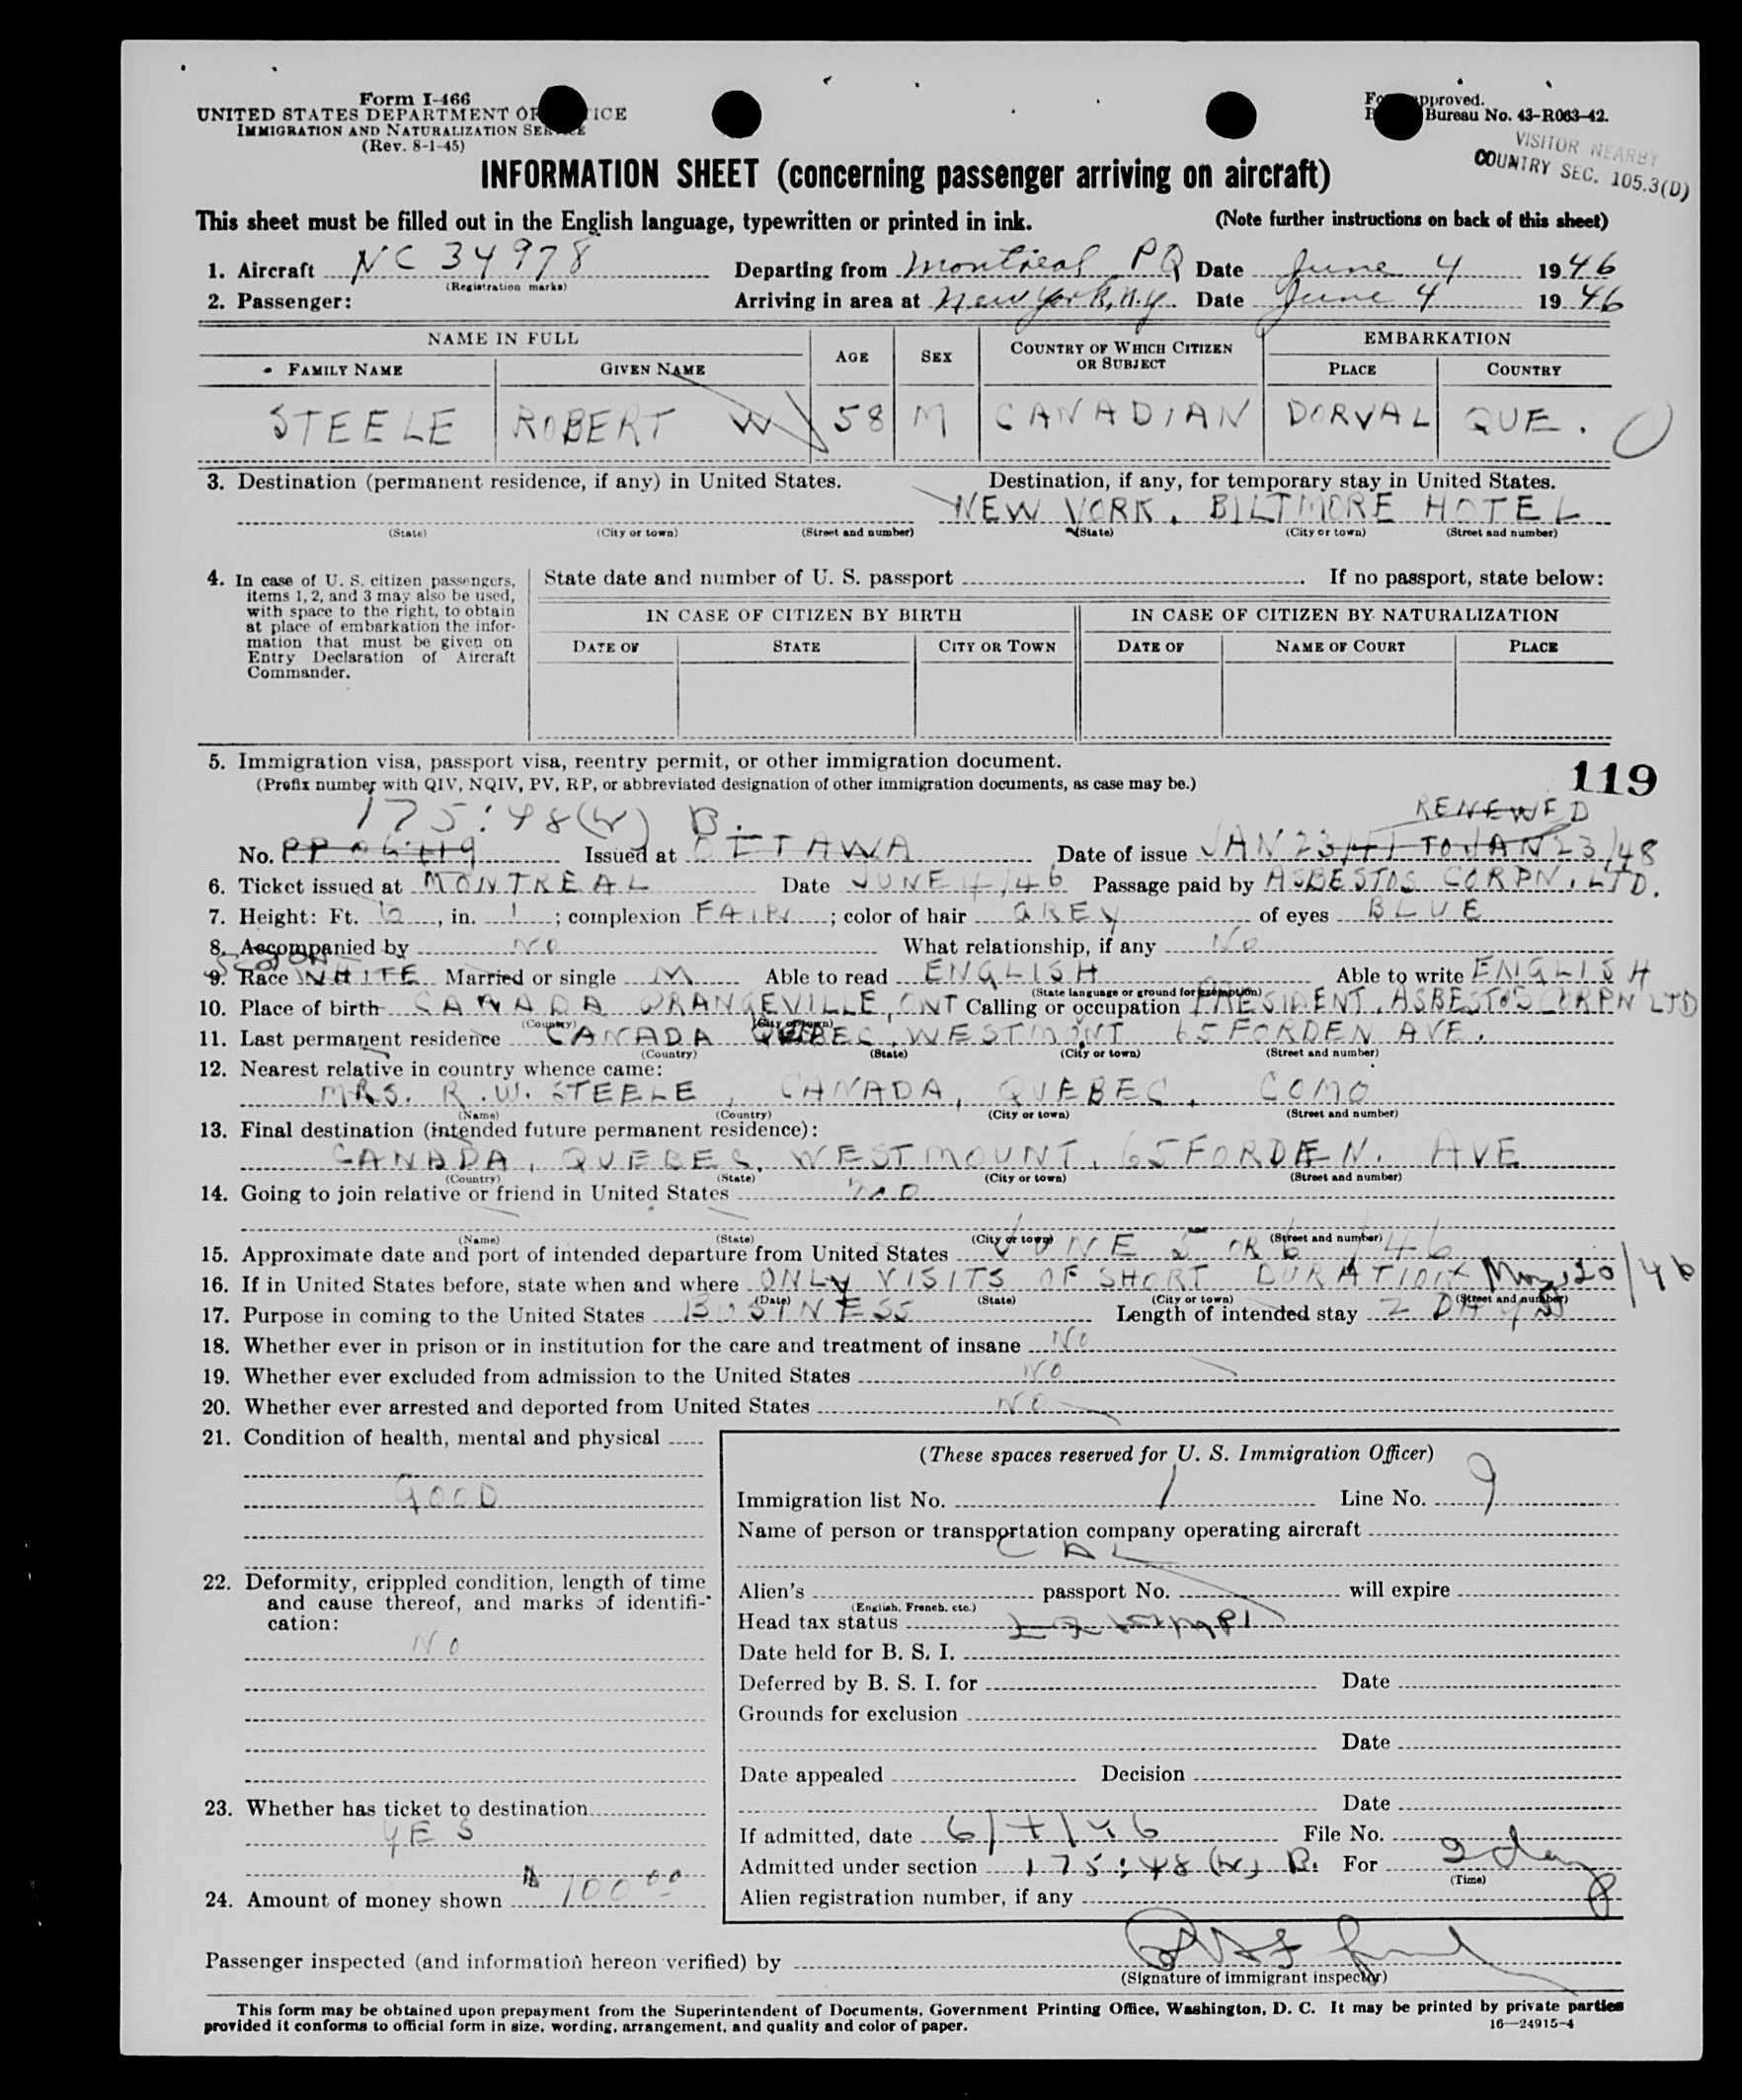 Form I-466
UNITED STATES DEPARTMENT OF JUSTICE
IMMIGRATION AND NATURALIZATION SERVICE
(Rev. 8-1-45)
Form approved.
Bureau No. 43-R063-42.
VISITOR NEARBY
COUNTRY SEC. 105.3(D)
INFORMATION SHEET (concerning passenger arriving on aircraft)
This sheet must be filled out in the English language, typewritten or printed in ink. (Note further instructions on back of this sheet)
1. Aircraft NC 34978 Departing from Montreal PQ Date June 4 1946
(Registration marks)
2. Passenger: Arriving in area at New York, N.Y. Date June 4 1946
NAME IN FULL AGE SEX COUNTRY OF WHICH CITIZEN OR SUBJECT EMBARKATION
FAMILY NAME GIVEN NAME PLACE COUNTRY
STEELE ROBERT W 58 M CANADIAN DORVAL QUE.
3. Destination (permanent residence, if any) in United States. Destination, if any, for temporary stay in United States.
NEW YORK. BILTMORE HOTEL
(State) (City or town) (Street and number) (State) (City or town) (Street and number)
4. In case of U. S. citizen passengers, items 1, 2, and 3 may also be used, with space to the right, to obtain at place of embarkation the information that must be given on Entry Declaration of Aircraft Commander.
State date and number of U. S. passport If no passport, state below:
IN CASE OF CITIZEN BY BIRTH IN CASE OF CITIZEN BY NATURALIZATION
DATE OF STATE CITY OR TOWN DATE OF NAME OF COURT PLACE
5. Immigration visa, passport visa, reentry permit, or other immigration document.
(Prefix number with QIV, NQIV, PV, RP, or abbreviated designation of other immigration documents, as case may be.)
119
175:48(W) B. RENEWED
No. Issued at OTTAWA Date of issue JAN 23/41 TO JAN 23/48
6. Ticket issued at MONTREAL Date JUNE 4/46 Passage paid by ASBESTOS CORPN. LTD.
7. Height: Ft. 6, in. 1; complexion FAIR; color of hair GREY of eyes BLUE
8. Accompanied by NO What relationship, if any NO
9. Race WHITE Married or single M Able to read ENGLISH Able to write ENGLISH
(State language or ground for exemption)
10. Place of birth CANADA ORANGEVILLE, ONT Calling or occupation PRESIDENT, ASBESTOS CORPN LTD
(Country) (City or town)
11. Last permanent residence CANADA QUEBEC, WESTMOUNT 65 FORDEN AVE.
(Country) (State) (City or town) (Street and number)
12. Nearest relative in country whence came:
MRS. R.W. STEELE, CANADA, QUEBEC, COMO
(Name) (Country) (City or town) (Street and number)
13. Final destination (intended future permanent residence):
CANADA, QUEBEC, WESTMOUNT, 65 FORDEN. AVE
(Country) (State) (City or town) (Street and number)
14. Going to join relative or friend in United States NO
(Name) (State) (City or town) (Street and number)
15. Approximate date and port of intended departure from United States JUNE 5 OR 6 /46
16. If in United States before, state when and where ONLY VISITS OF SHORT DURATION May 20/46
(Date) (State) (City or town) (Street and number)
17. Purpose in coming to the United States BUSINESS Length of intended stay 2 DAYS
18. Whether ever in prison or in institution for the care and treatment of insane NO
19. Whether ever excluded from admission to the United States NO
20. Whether ever arrested and deported from United States NO
21. Condition of health, mental and physical
GOOD
22. Deformity, crippled condition, length of time and cause thereof, and marks of identification:
NO
23. Whether has ticket to destination
YES
24. Amount of money shown $ 100 00
(These spaces reserved for U. S. Immigration Officer)
Immigration list No. 1 Line No. 9
Name of person or transportation company operating aircraft
CAL
Alien's passport No. will expire
(English, French, etc.)
Head tax status Exempt
Date held for B. S. I.
Deferred by B. S. I. for Date
Grounds for exclusion
Date
Date appealed Decision
Date
If admitted, date 6/4/46 File No.
Admitted under section 175:48(W) B. For 2 days
(Time)
Alien registration number, if any
Passenger inspected (and information hereon verified) by
(Signature of immigrant inspector)
This form may be obtained upon prepayment from the Superintendent of Documents, Government Printing Office, Washington, D. C. It may be printed by private parties
provided it conforms to official form in size, wording, arrangement, and quality and color of paper.
16—24915-4